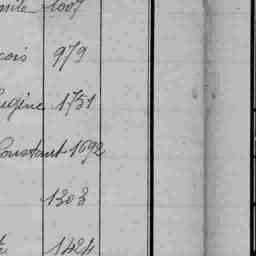 mile 1007
cois 979
Eugène 1751
Constant 1692
1303
1424